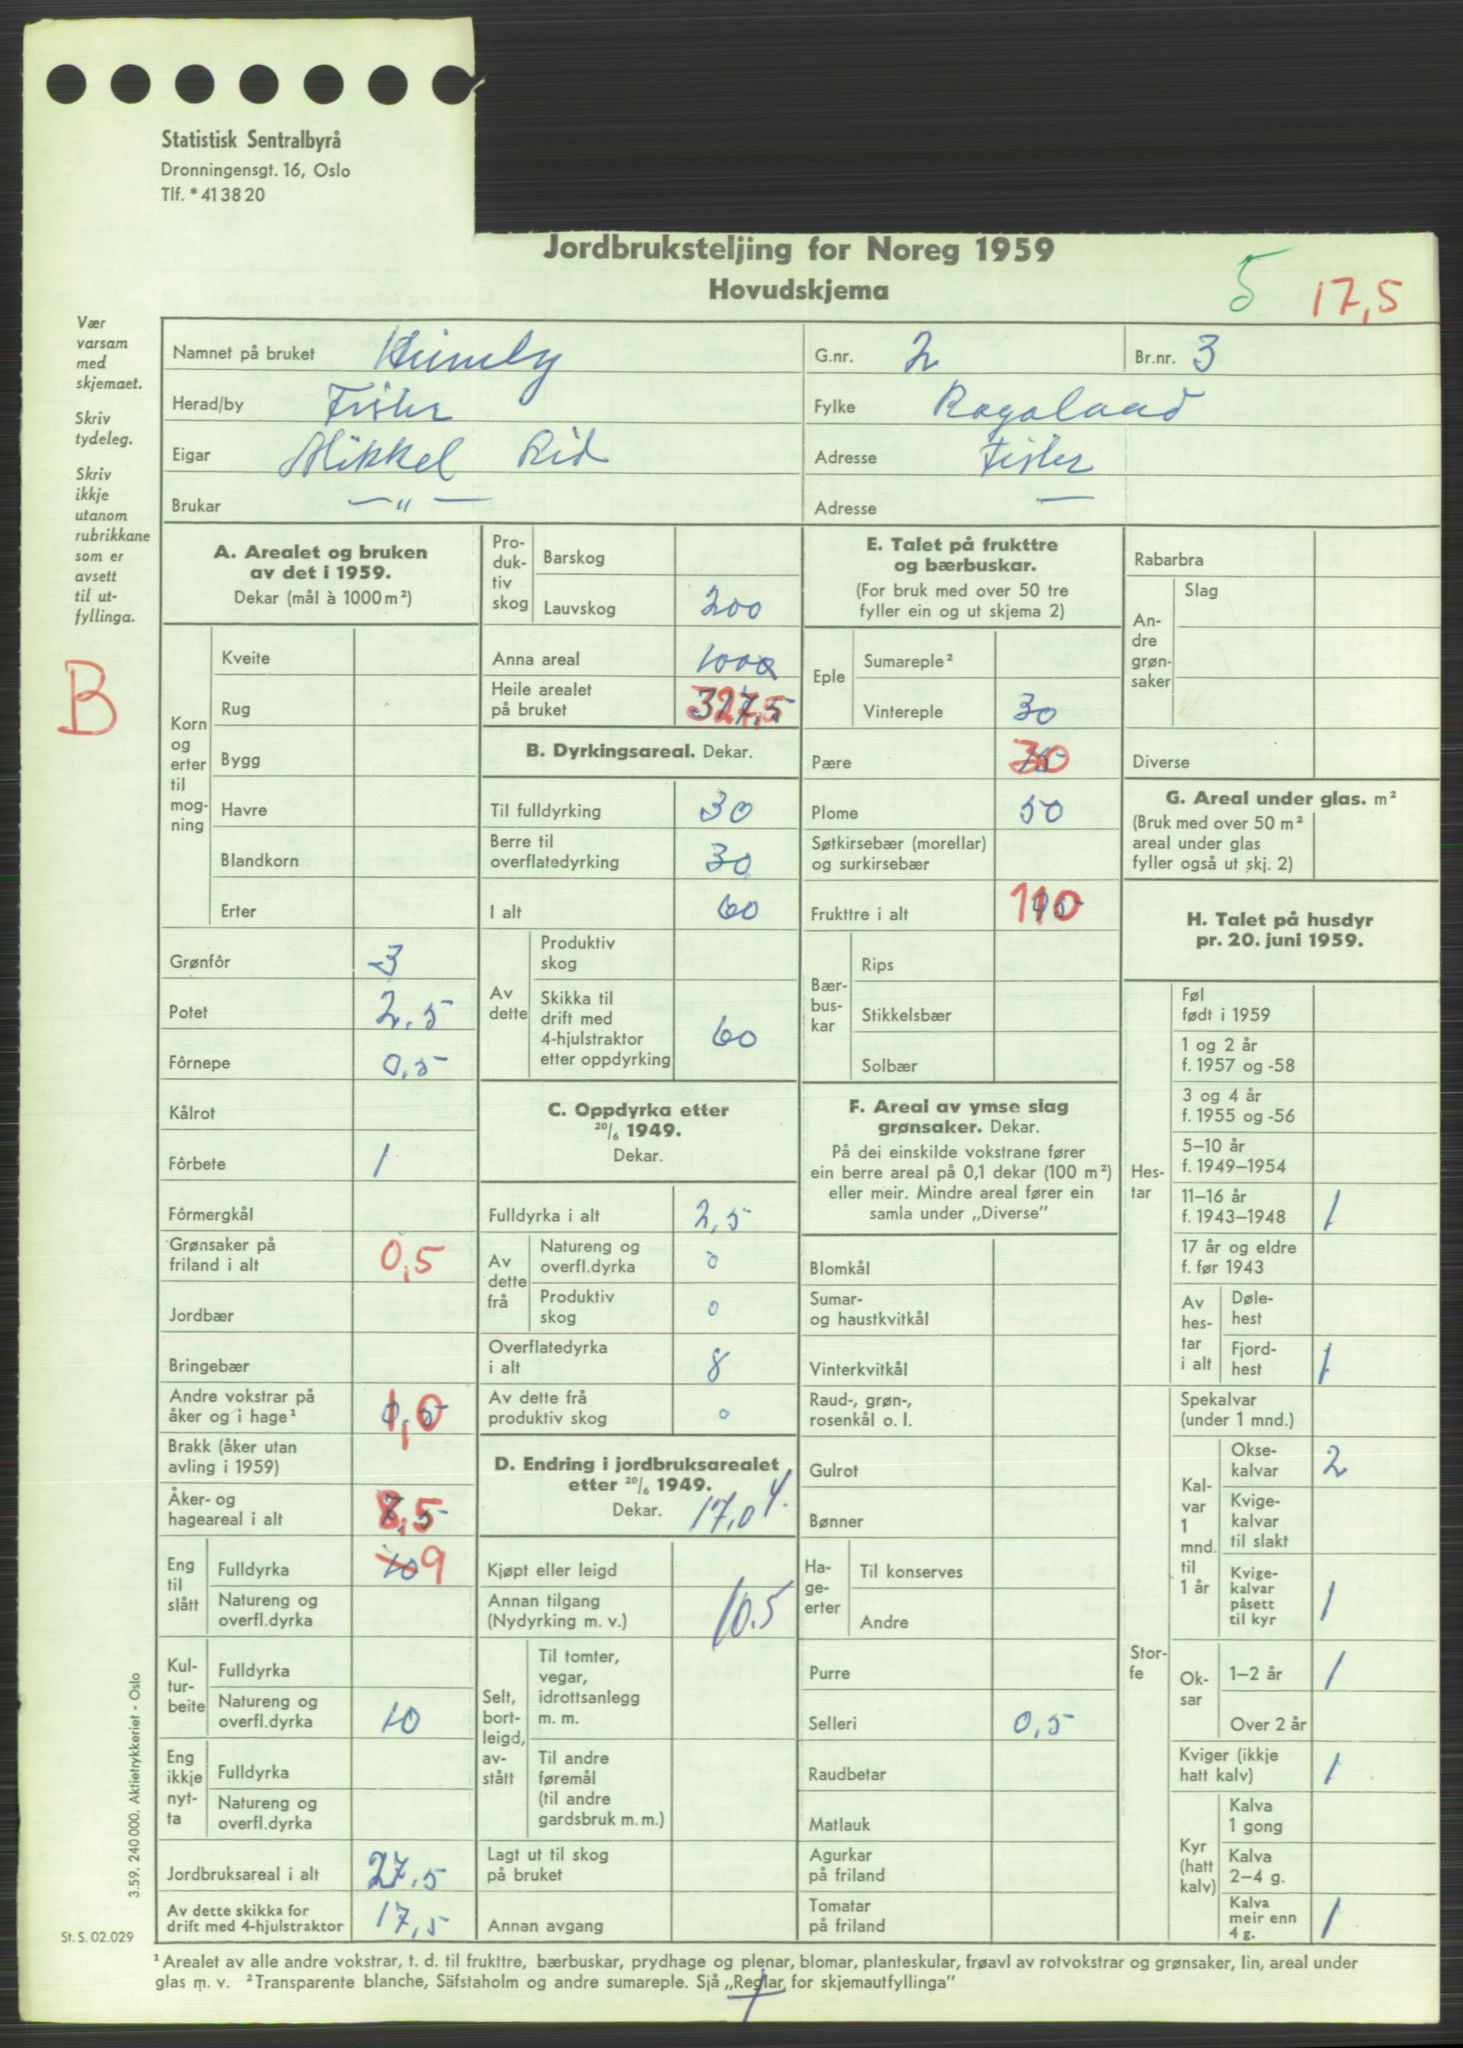 Statistisk Sentralbyrå
Dronningensgt. 16, Oslo
Tlf. * 41 38 20
Jordbruksteljing for Noreg 1959
Hovudskjema
5 17,5
Vær
varsam
med
skjemaet.
Skriv
tydeleg.
Skriv
ikkje
utanom
rubrikkane
som er
avsett
til ut-
fyllinga.
B
Namnet på bruket Heimly G.nr. 2 Br.nr. 3
Herad/by Fister Fylke Rogaland
Eigar Mikkel Rid Adresse Fister
Brukar — „ — Adresse —
A. Arealet og bruken
av det i 1959.
Dekar (mål à 1000 m²)
Korn
og
erter
til
mog-
ning
Kveite
Rug
Bygg
Havre
Blandkorn
Erter
Grønfôr 3
Potet 2,5
Fôrnepe 0,5
Kålrot
Fôrbete 1
Fôrmergkål
Grønsaker på
friland i alt 0,5
Jordbær
Bringebær
Andre vokstrar på
åker og i hage¹ 1,0
Brakk (åker utan
avling i 1959)
Åker- og
hageareal i alt 8,5
Eng
til
slått
Fulldyrka 10 9
Natureng og
overfl.dyrka
Kul-
tur-
beite
Fulldyrka
Natureng og
overfl.dyrka 10
Eng
ikkje
nyt-
ta
Fulldyrka
Natureng og
overfl.dyrka
Jordbruksareal i alt 27,5
Av dette skikka for
drift med 4-hjulstraktor 17,5
Pro-
duk-
tiv
skog
Barskog
Lauvskog 200
Anna areal 1000
Heile arealet
på bruket 327,5
B. Dyrkingsareal. Dekar.
Til fulldyrking 30
Berre til
overflatedyrking 30
I alt 60
Av
dette
Produktiv
skog
Skikka til
drift med
4-hjulstraktor
etter oppdyrking 60
C. Oppdyrka etter
20/6 1949.
Dekar.
Fulldyrka i alt 2,5
Av
dette
frå
Natureng og
overfl.dyrka 0
Produktiv
skog 0
Overflatedyrka
i alt 8
Av dette frå
produktiv skog 0
D. Endring i jordbruksarealet
etter 20/6 1949.
Dekar. 17,0
Kjøpt eller leigd
Annan tilgang
(Nydyrking m. v.) 10.5
Selt,
bort-
leigd,
av-
stått
Til tomter,
vegar,
idrottsanlegg
m. m.
Til andre
føremål
(til andre
gardsbruk m. m.)
Lagt ut til skog
på bruket
Annan avgang
E. Talet på frukttre
og bærbuskar.
(For bruk med over 50 tre
fyller ein og ut skjema 2)
Eple
Sumareple²
Vintereple 30
Pære 30
Plome 50
Søtkirsebær (morellar)
og surkirsebær
Frukttre i alt 110
Bær-
bus-
kar
Rips
Stikkelsbær
Solbær
F. Areal av ymse slag
grønsaker. Dekar.
På dei einskilde vokstrane fører
ein berre areal på 0,1 dekar (100 m²)
eller meir. Mindre areal fører ein
samla under „Diverse”
Blomkål
Sumar-
og haustkvitkål
Vinterkvitkål
Raud-, grøn-,
rosenkål o. l.
Gulrot
Bønner
Ha-
ge-
erter
Til konserves
Andre
Purre
Selleri 0,5
Raudbetar
Matlauk
Agurkar
på friland
Tomatar
på friland
Rabarbra
An-
dre
grøn-
saker
Slag
Diverse
G. Areal under glas. m²
(Bruk med over 50 m²
areal under glas
fyller også ut skj. 2)
H. Talet på husdyr
pr. 20. juni 1959.
Hes-
tar
Føl
født i 1959
1 og 2 år
f. 1957 og -58
3 og 4 år
f. 1955 og -56
5–10 år
f. 1949–1954
11–16 år
f. 1943–1948 1
17 år og eldre
f. før 1943
Av
hes-
tar
i alt
Døle-
hest
Fjord-
hest 1
Stor-
fe
Spekalvar
(under 1 mnd.)
Kal-
var
1
mnd.
til
1 år
Okse-
kalvar 2
Kvige-
kalvar
til slakt
Kvige-
kalvar
påsett
til kyr 1
Ok-
sar
1–2 år 1
Over 2 år
Kviger (ikkje
hatt kalv) 1
Kyr
(hatt
kalv)
Kalva
1 gong
Kalva
2–4 g.
Kalva
meir enn
4 g. 1
3.59. 240 000. Aktietrykkeriet - Oslo
St. S. 02.029
¹ Arealet av alle andre vokstrar, t. d. til frukttre, bærbuskar, prydhage og plenar, blomar, planteskular, frøavl av rotvokstrar og grønsaker, lin, areal under
glas m. v. ² Transparente blanche, Säfstaholm og andre sumareple. Sjå „Reglar for skjemautfyllinga”